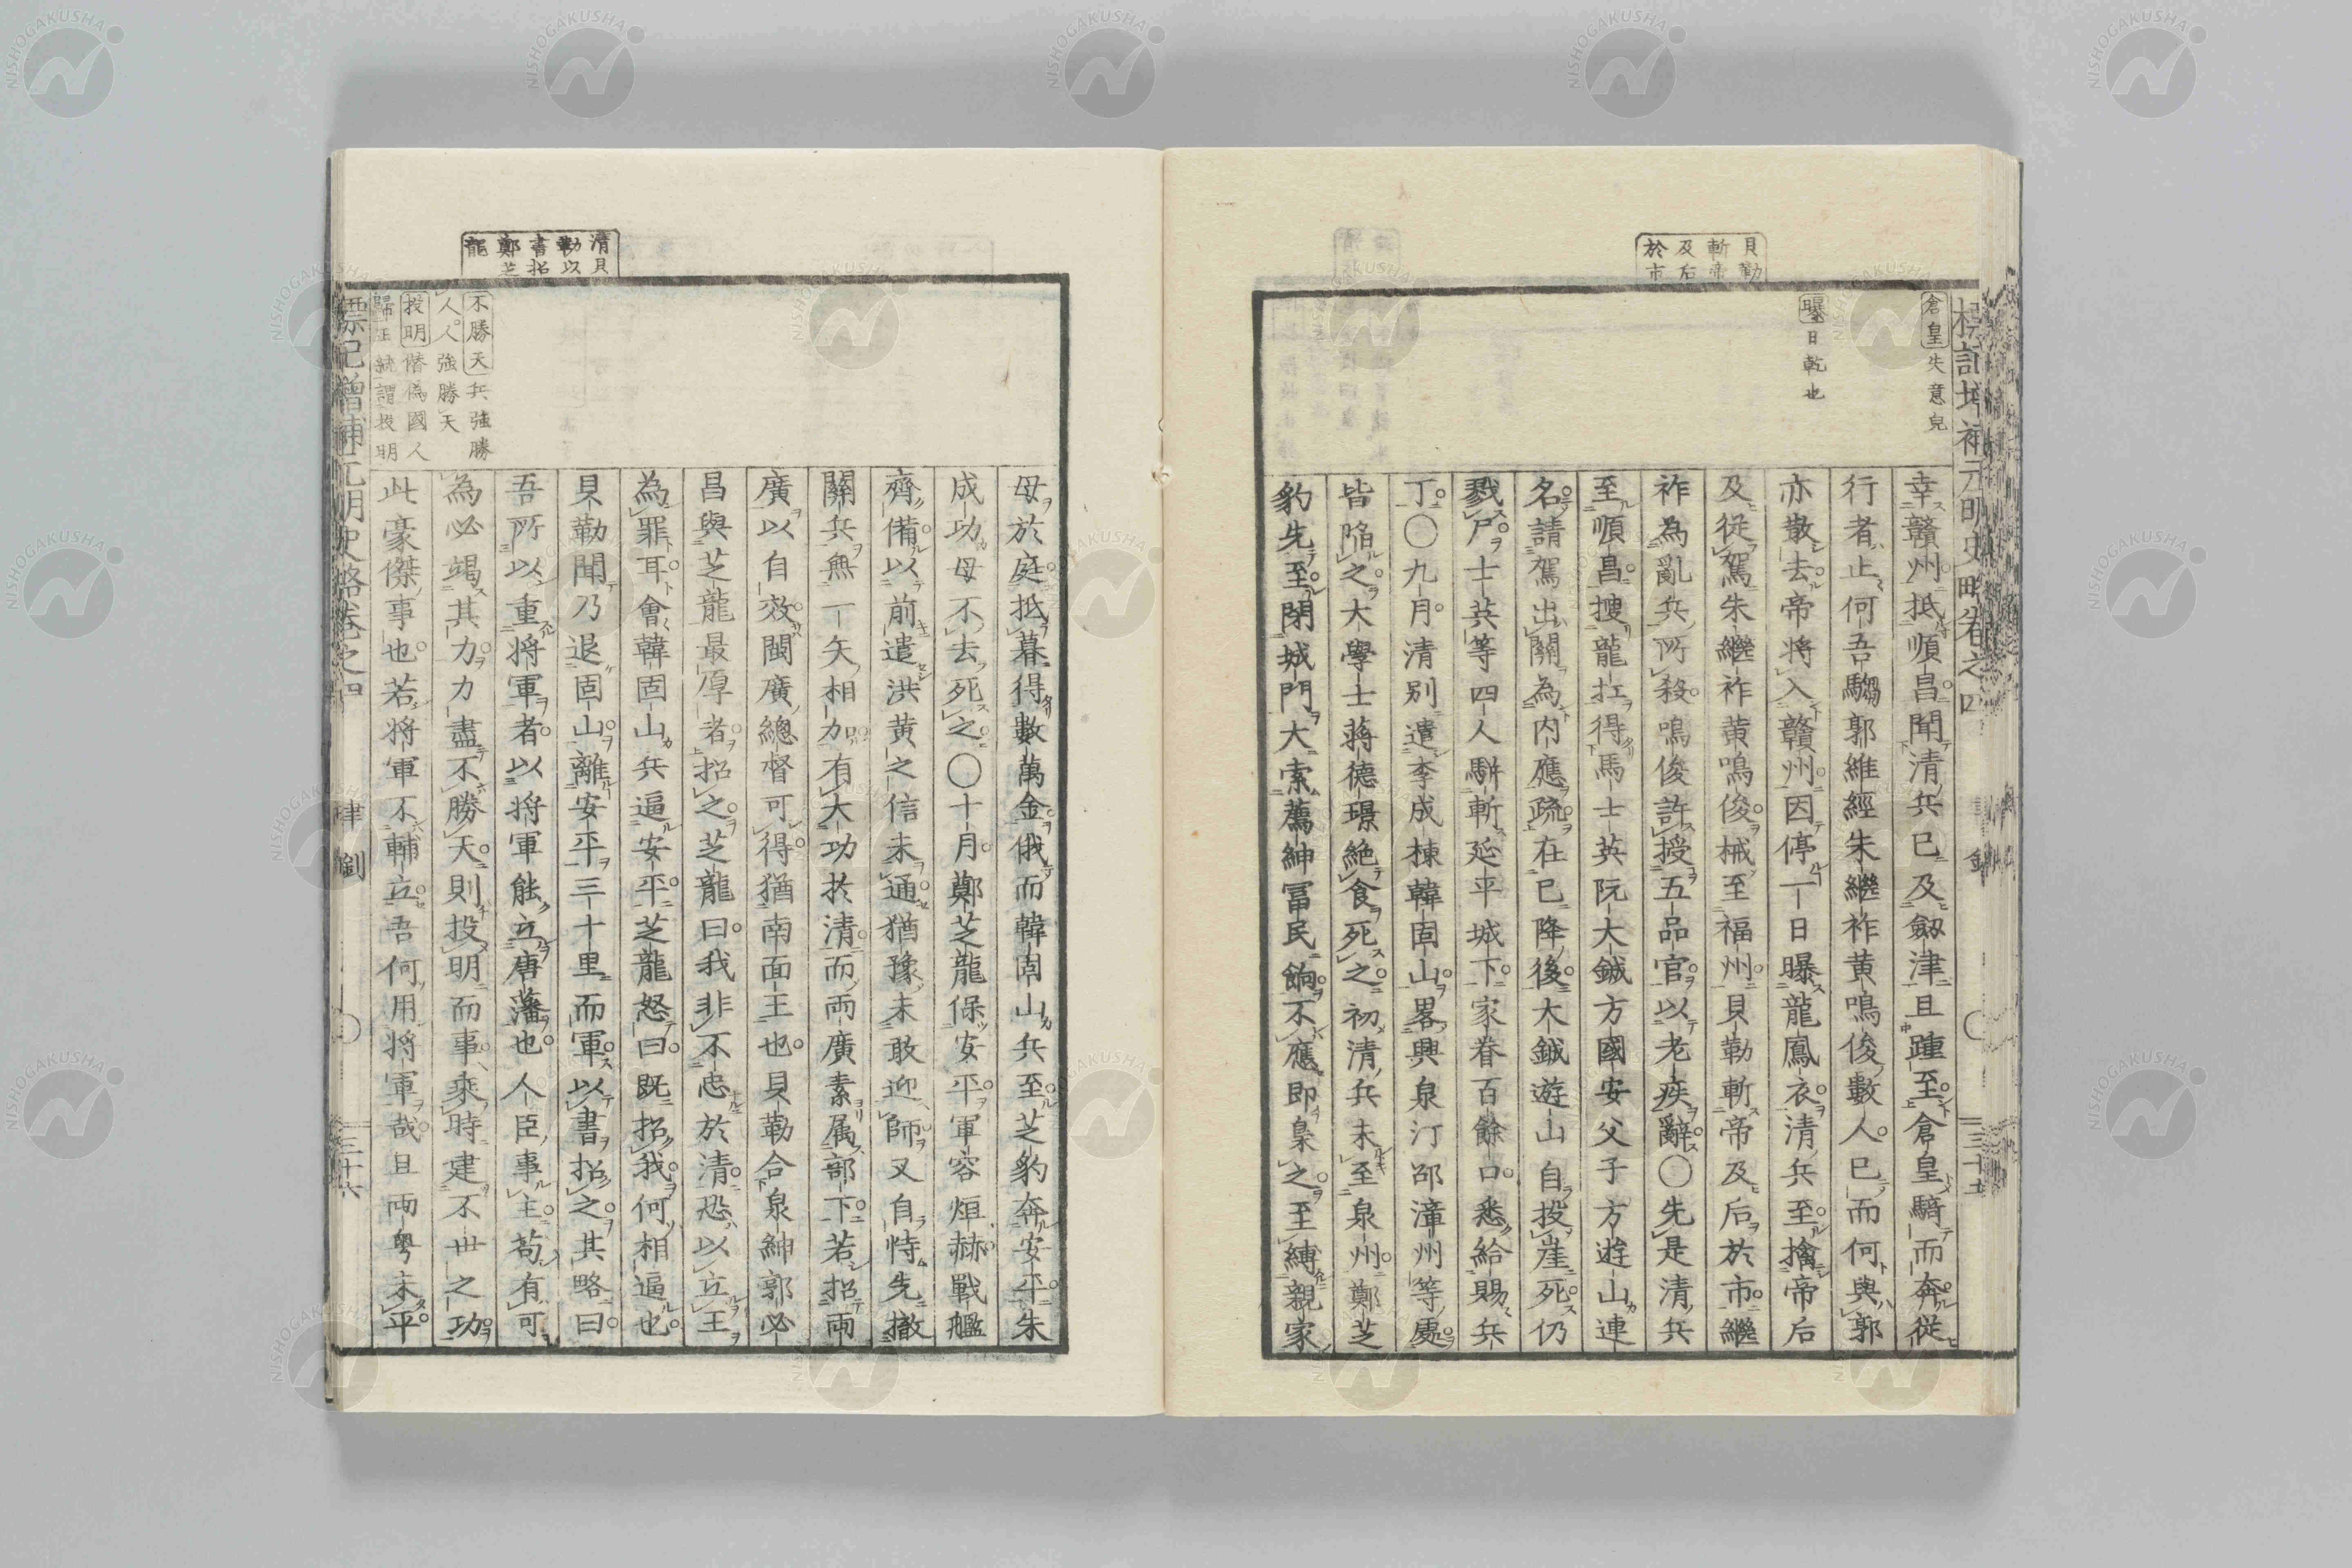 貝勒
斬帝
及后
於市
倉皇失意皃
曝日乾也
幸贛州抵順昌聞清兵已及劔津且踵至倉皇騎而奔從
行者止何吾騶郭維經朱繼祚黄鳴俊數人已而何與郭
亦散去帝將入贛州因停一日曝龍鳳衣清兵至擒帝后
及從駕朱繼祚黄鳴俊械至福州貝勒斬帝及后於市繼
祚為亂兵所殺鳴俊許授五品官以老疾辭〇先是清兵
至順昌搜龍扛得馬士英阮大鋮方國安父子方遊山連
名請駕出關為内應疏在已降後大鋮遊山自投崖死仍
戮尸士英等四人駢斬延平城下家眷百餘口悉給賜兵
丁〇九月清别遣李成棟韓固山畧興泉汀邵漳州等處
皆陷之大學士蔣德璟絶食死之初清兵未至泉州鄭芝
豹先至閉城門大索薦紳冨民餉不應即梟之至縛親家
清貝
勒以
書招
鄭芝
龍
不勝天兵強勝
人人強勝天
投明僭偽國人
歸正統謂投明
母於庭抵暮得數萬金俄而韓固山兵至芝豹奔安平朱
成功母不去死之〇十月鄭芝龍保安平軍容烜赫戰艦
齊備以前遣洪黄之信未通猶豫未敢迎師又自恃先撤
關兵無一矢相加有大功於清而兩廣素属部下若招兩
廣以自效閩廣總督可得猶南面王也貝勒令泉紳郭必
昌與芝龍最厚者招之芝龍曰我非不忠於清恐以立王
為罪耳會韓固山兵逼安平芝龍怒曰既招我何相逼也
貝勒聞乃退固山離安平三十里而軍以書招之其略曰
吾所以重將軍者以將軍能立唐藩也人臣事主苟有可
為必竭其力力盡不勝天則投明而事乘時建不世之功
此豪傑事也若將軍不輔立吾何用將軍哉且兩粤未平
標記增補元明史略卷之四
三十六